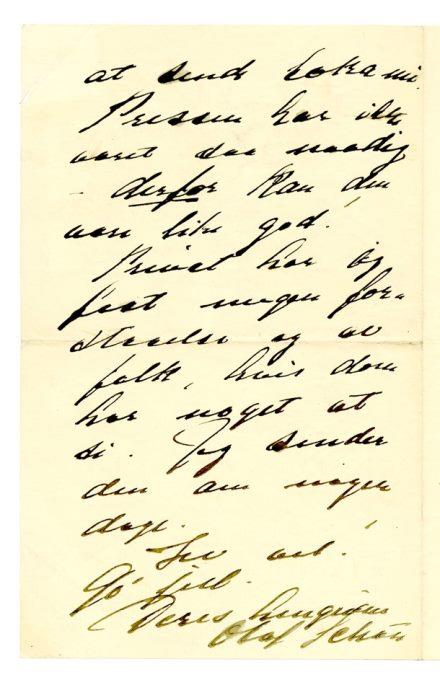 at sende
Pressen har ikke
været saa naadig
- derfor kan den
være like god!
Privat har jeg
faat megen for-
staaelse og av
folk, hvis dom
har noget at
si. Jeg sender
den om nogen
dage.
Lev vel!
Gó jul.
Deres hengivne
Olaf